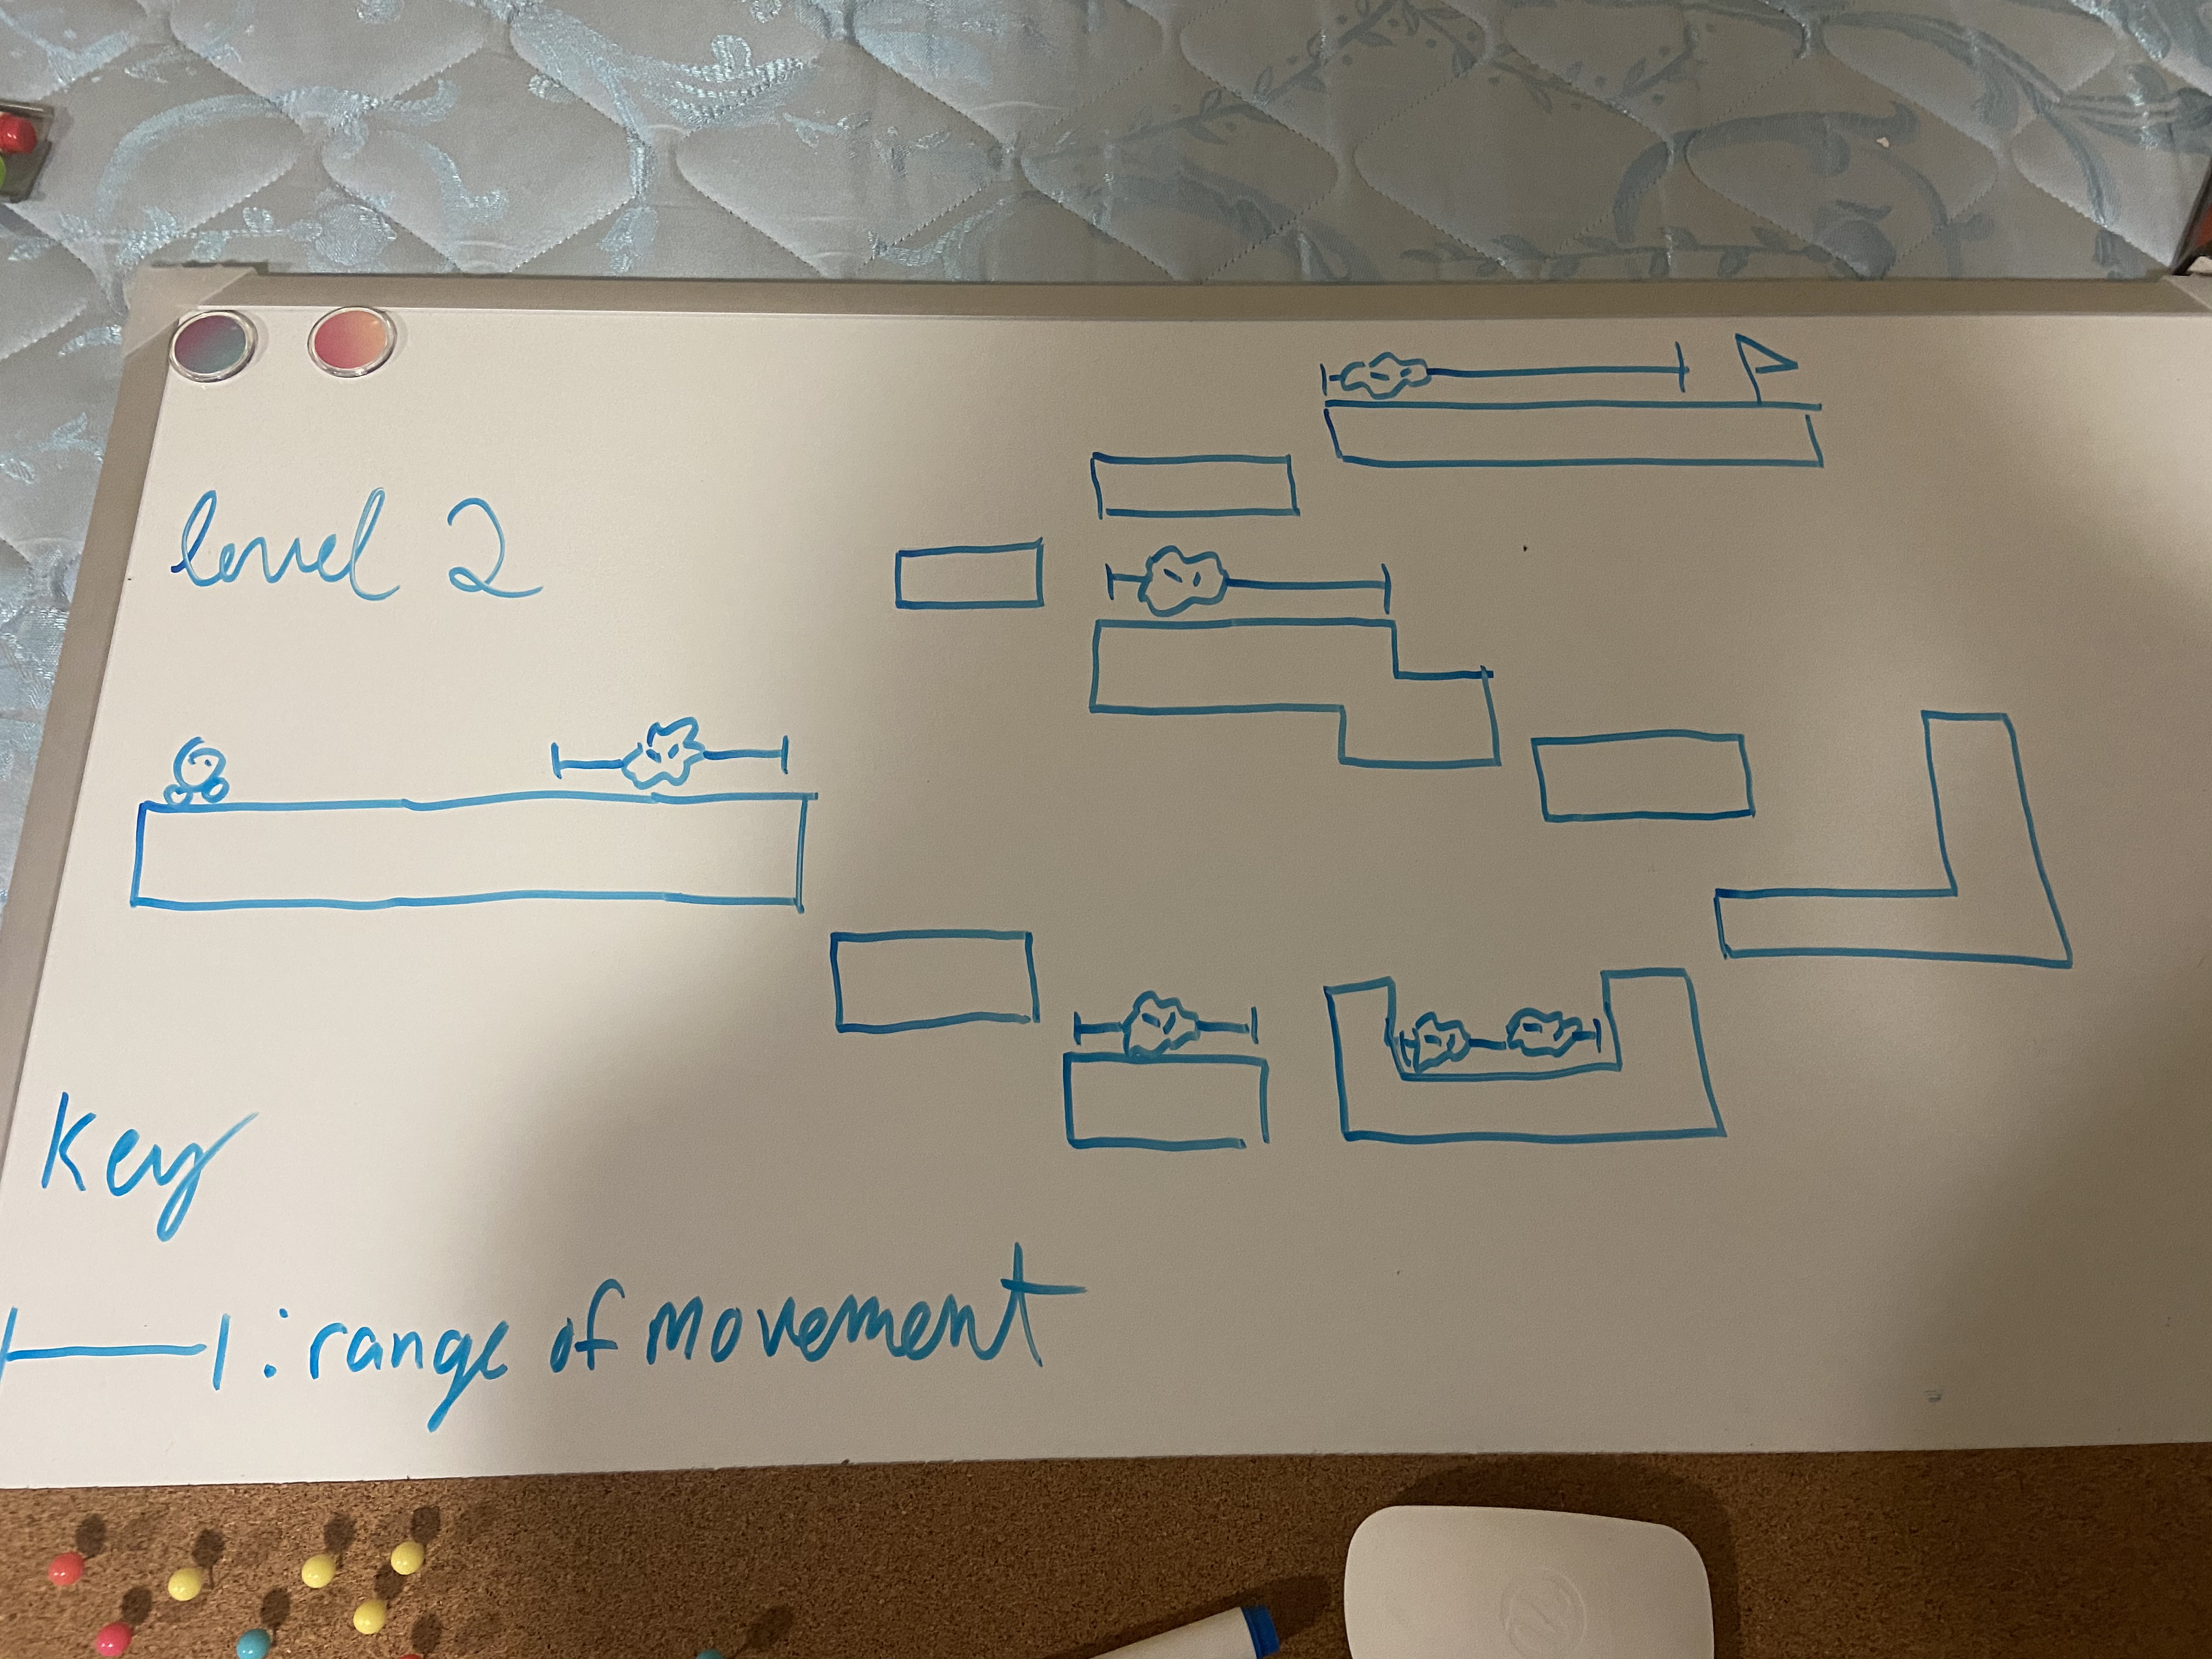 level 2
Key
|—| : range of movement